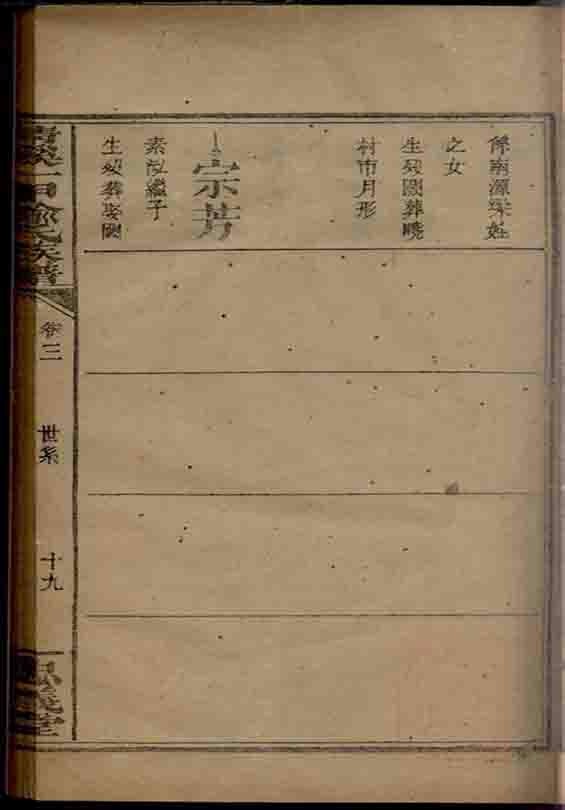 係南源梁姓
之女
生歿闕葬曉
村市月形
宗芳
素從繼子
生歿葬娶闕
族譜
卷三
世系
十九
義堂